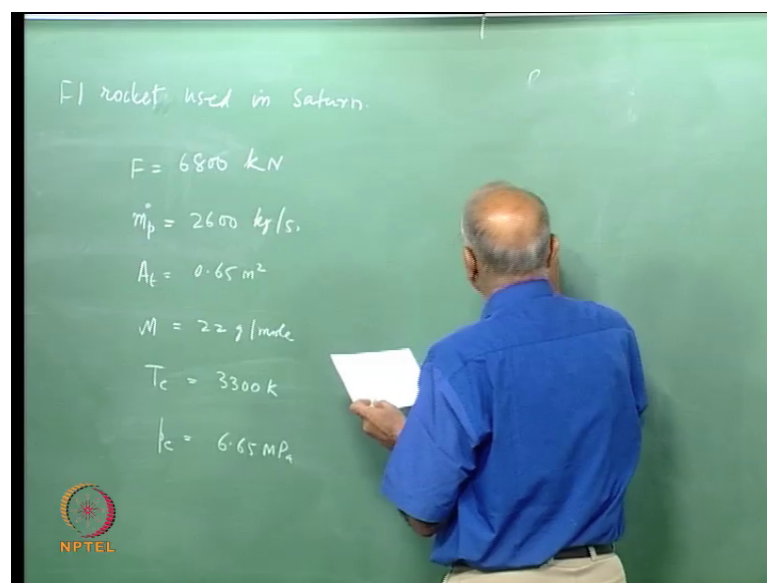 F1 rocket used in Saturn.
F = 6800 kN
ṁp = 2600 kg/s.
At = 0.65 m²
M = 22 g/mole
Tc = 3300 K
pc = 6.65 MPa
NPTEL